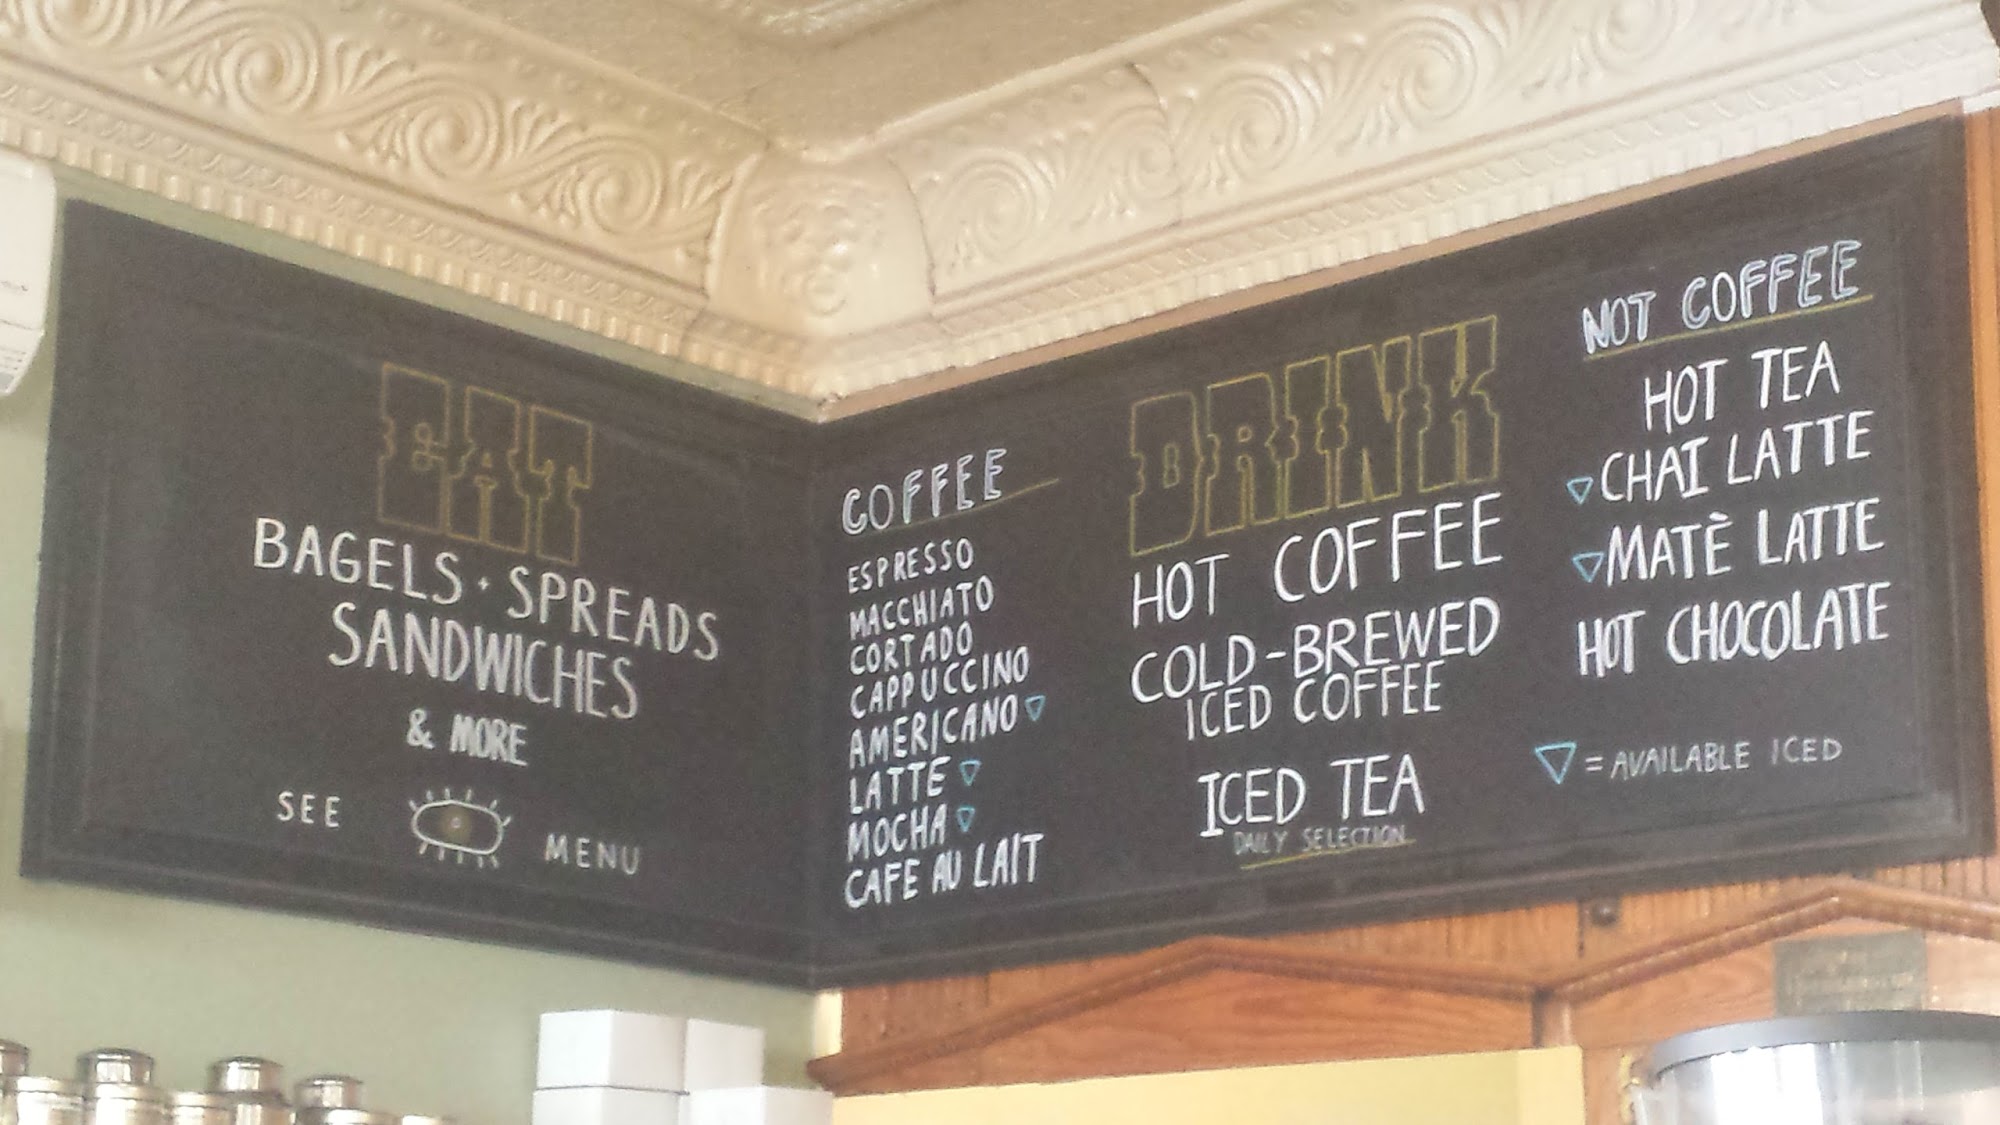 EAT
BAGELS · SPREADS
SANDWICHES
& MORE
SEE MENU
COFFEE
ESPRESSO
MACCHIATO
CORTADO
CAPPUCCINO
AMERICANO ▽
LATTE ▽
MOCHA ▽
CAFE AU LAIT
DRINK
HOT COFFEE
COLD-BREWED
ICED COFFEE
ICED TEA
DAILY SELECTION
NOT COFFEE
HOT TEA
▽ CHAI LATTE
▽ MATÈ LATTE
HOT CHOCOLATE
▽ = AVAILABLE ICED